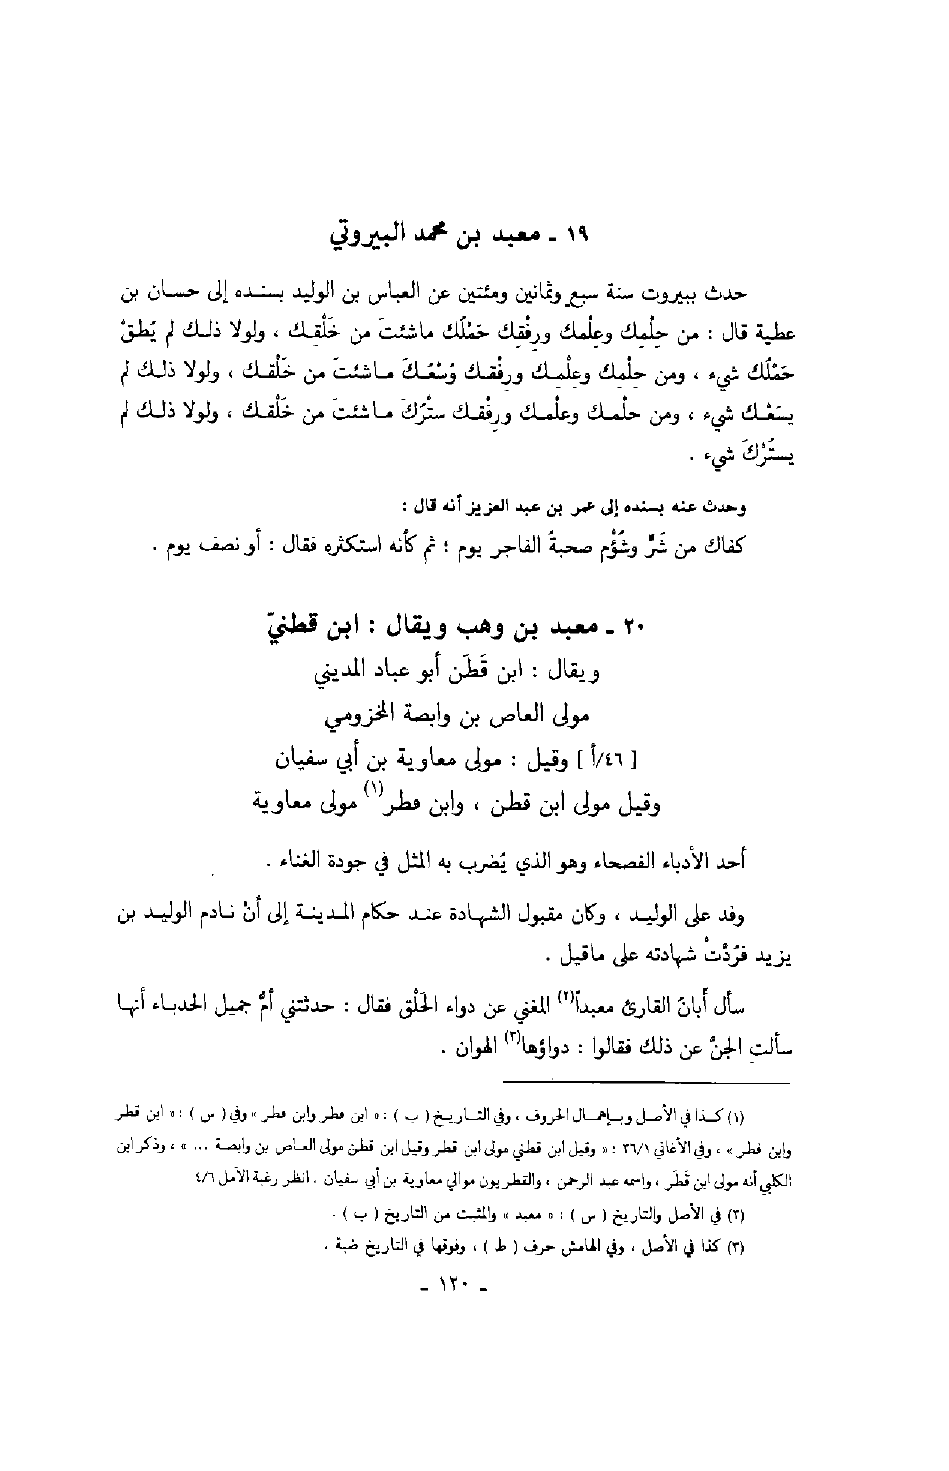 ١٩ ـ معبد بن محمد البيروتي
حدث ببيروت سنة سبع وثمانين ومئتين عن العباس بن الوليد بسنده إلى حسان بن
عطية قال : من حِلْمِك وعِلْمك ورِفْقك حَمْلُك ماشئتَ من خَلْقك ، ولولا ذلك لم يُطقْ
حَمْلَك شيء ، ومن حلْمِك وعلْمك ورِفْقك وُسْعُكَ ماشئتَ من خَلْقك ، ولولا ذلك لم
يسَعْك شيء ، ومن حلْمك وعلْمك ورِفْقك سَتْرُكَ ماشئتَ من خَلْقك ، ولولا ذلك لم
يستُرْكَ شيء .
وحدث عنه بسنده إلى عمر بن عبد العزيز أنه قال :
كفاك من شَرٍّ وشُؤْم صحبةُ الفاجر يوم ؛ ثم كأنه استكثره فقال : أو نصف يوم .
٢٠ ـ معبد بن وهب ويقال : ابن قطنيّ
ويقال : ابن قَطَن أبو عباد المديني
مولى العاص بن وابصة المخزومي
[ ٤٦/أ ] وقيل : مولى معاوية بن أبي سفيان
وقيل مولى ابن قطن ، وابن فطر(١) مولى معاوية
أحد الأدباء الفصحاء وهو الذي يُضرب به المثل في جودة الغناء .
وفد على الوليد ، وكان مقبول الشهادة عند حكام المدينة إلى أنْ نادم الوليد بن
يزيد فرُدَّتْ شهادته على ماقيل .
سأل أبانُ القارئ معبداً(٢) المغني عن دواء الحَلْق فقال : حدثتني أمُّ جميل الحدباء أنها
سألتِ الجنَّ عن ذلك فقالوا : دواؤها(٣) الهوان .
(١) كذا في الأصل وبإهمال الحروف ، وفي التاريخ ( ب ) : « ابن فطر وابن فطر » وفي ( س ) : « ابن قطر
وابن فطر » ، وفي الأغاني ٣٦/١ : « وقيل ابن قطني مولى ابن قطر وقيل ابن قطن مولى العاص بن وابصة ... » ، وذكر ابن
الكلبي أنه مولى ابن قَطَر ، واسمه عبد الرحمن ، والقطريون موالي معاوية بن أبي سفيان . انظر رغبة الآمل ٤/٦
(٢) في الأصل والتاريخ ( س ) : « معبد » والمثبت من التاريخ ( ب ) .
(٣) كذا في الأصل ، وفي الهامش حرف ( ط ) ، وفوقها في التاريخ ضبة .
ـ ١٢٠ ـ